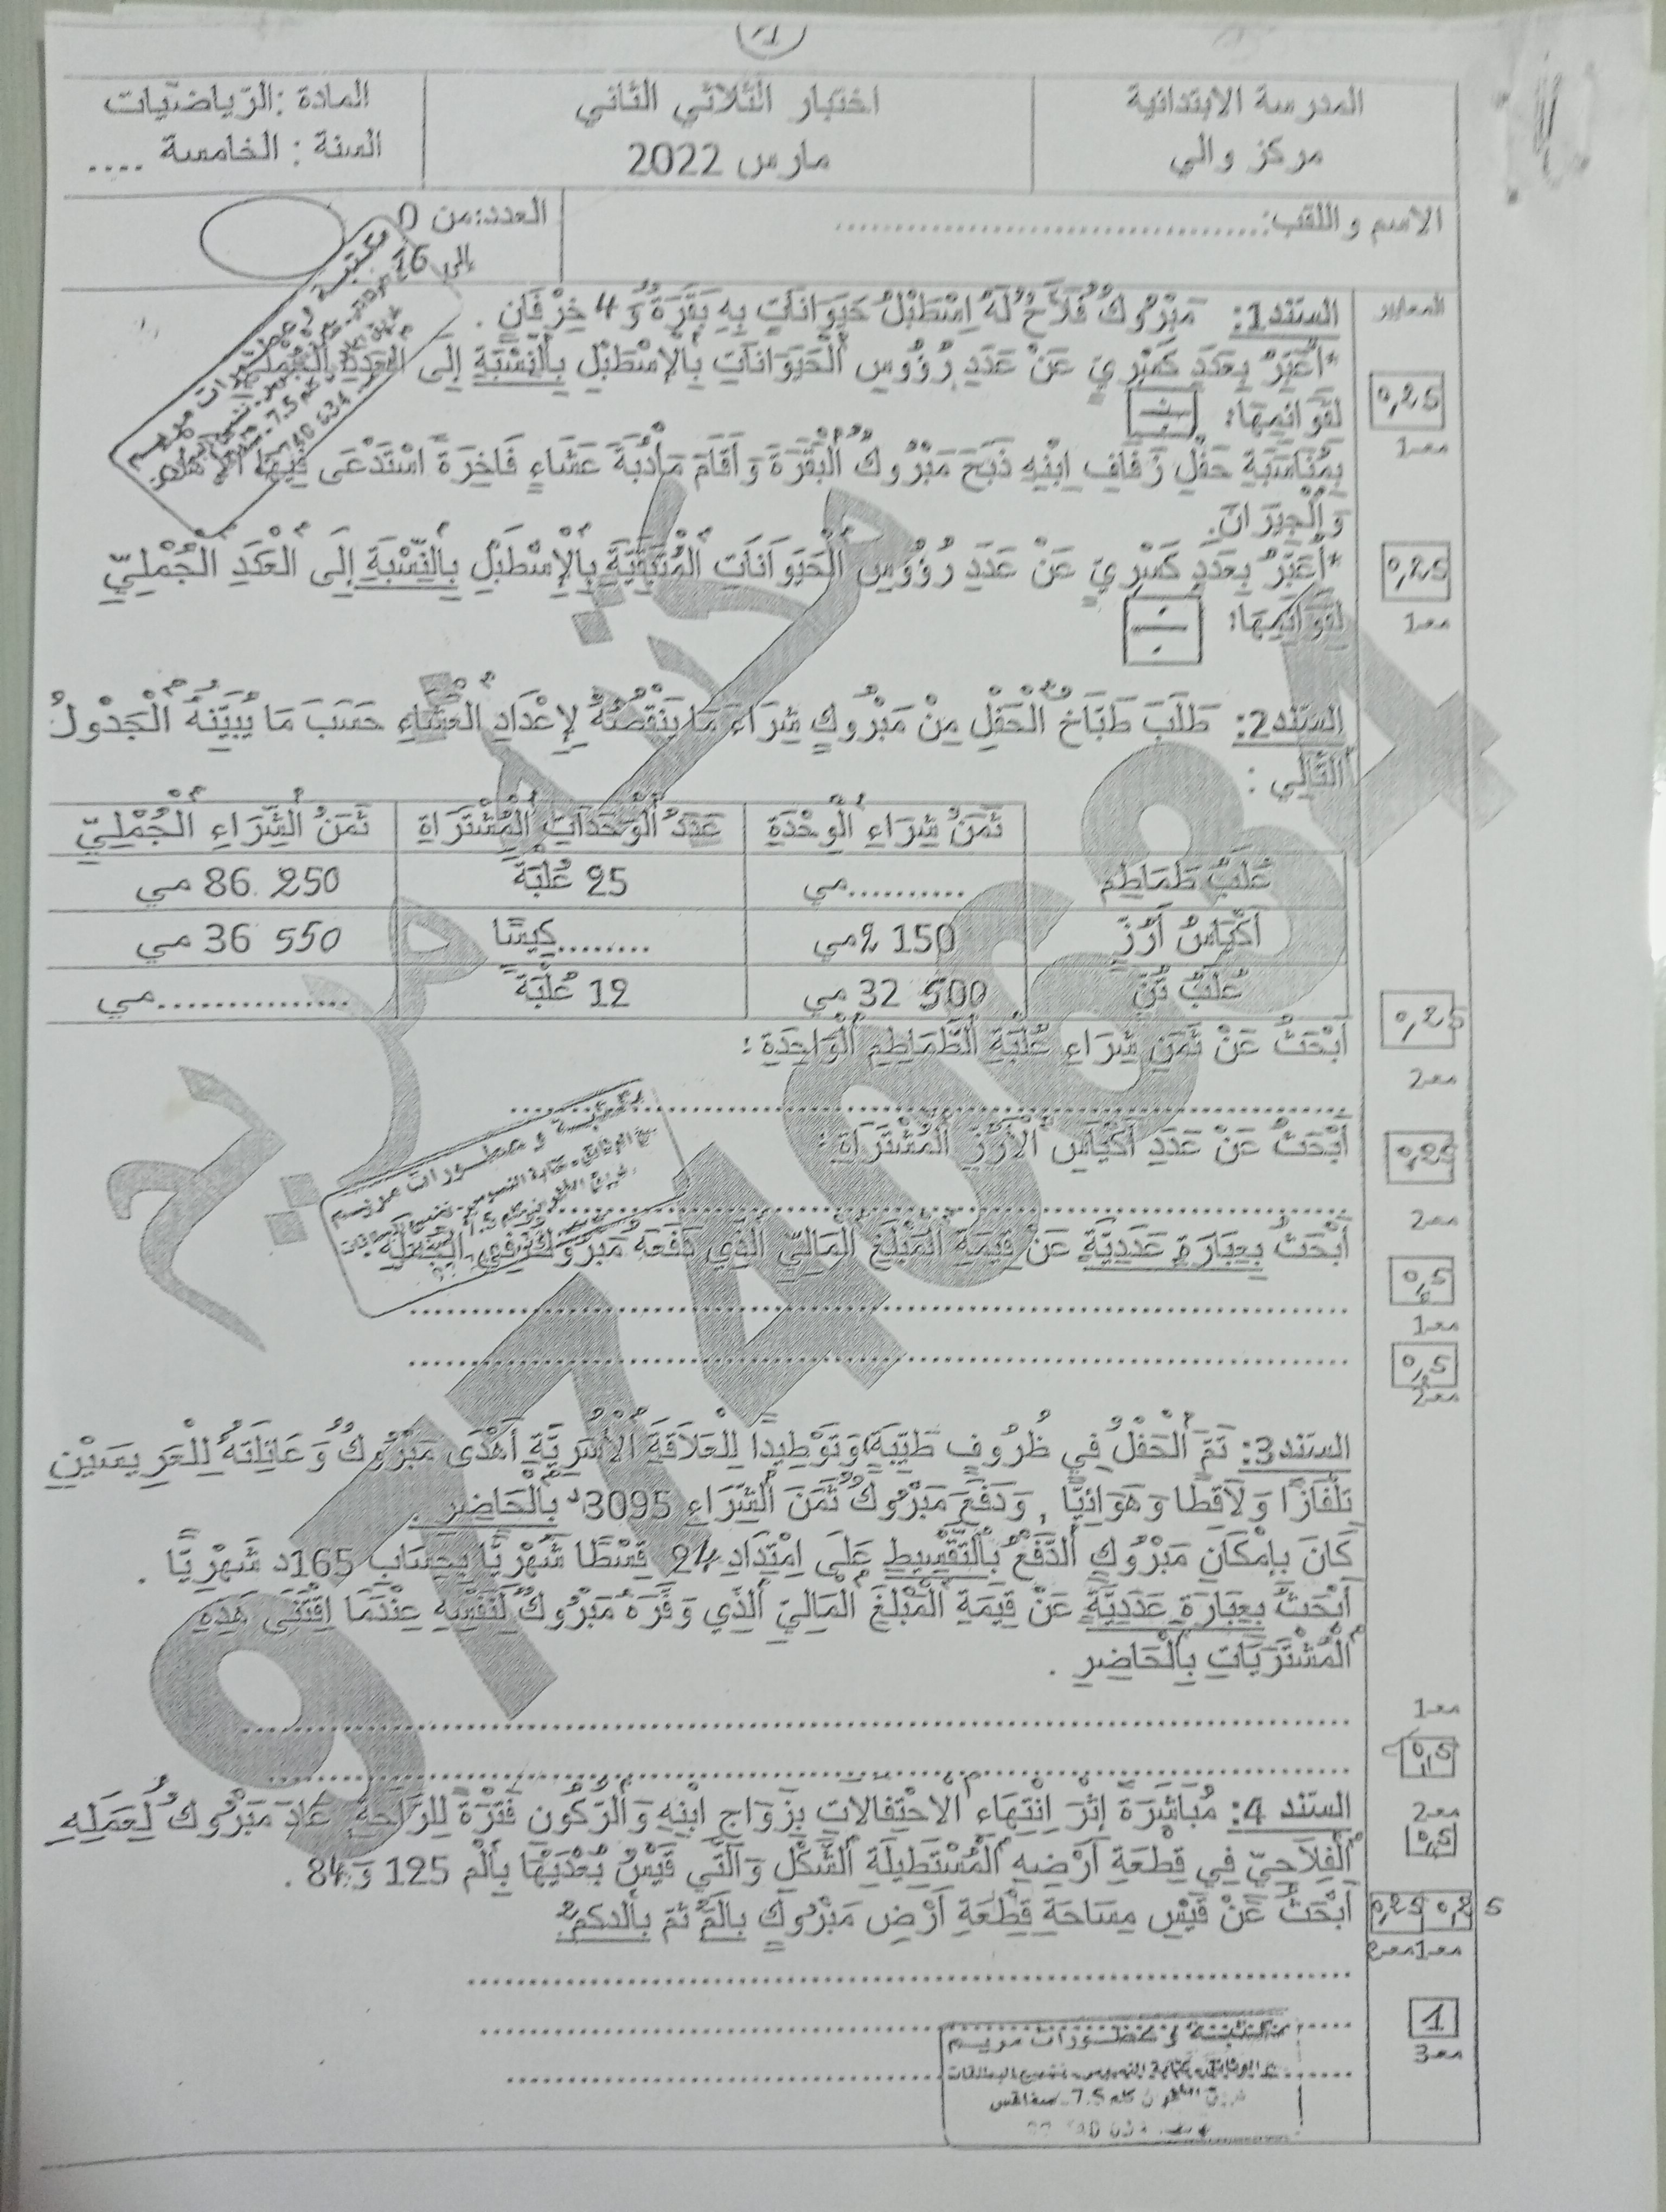 1
المدرسة الابتدائية
مركز والي
اختبار الثلاثي الثاني
مارس 2022
المادة :الرّياضيّات
السنة : الخامسة ....
الاسم و اللقب:.......................................
العدد:من 0
إلى 16
المعايير
السّند1: مَبْرُوكٌ فَلاَّحٌ لَهُ إِسْطَبْلُ حَيَوَانَاتٍ بِهِ بَقَرَةٌ وَ 4 خِرْفَانٍ .
*أُعَبِّرُ بِعَدَدٍ كَسْرِيٍّ عَنْ عَدَدِ رُؤُوسِ الْحَيَوَانَاتِ بِالْإِسْطَبْلِ بِالنِّسْبَةِ إِلَى الْعَدَدِ الْجُمْلِيِّ
لِقَوَائِمِهَا:
0,25
معـ1
بِمُنَاسَبَةِ حَفْلِ زَفَافِ ابْنِهِ ذَبَحَ مَبْرُوكٌ الْبَقَرَةَ وَ أَقَامَ مَأْدُبَةَ عَشَاءٍ فَاخِرَةً اسْتَدْعَى فِيهَا الْأَهْلَ
وَالْجِيرَانَ.
*أُعَبِّرُ بِعَدَدٍ كَسْرِيٍّ عَنْ عَدَدِ رُؤُوسِ الْحَيَوَانَاتِ الْمُتَبَقِّيَةِ بِالْإِسْطَبْلِ بِالنِّسْبَةِ إِلَى الْعَدَدِ الْجُمْلِيِّ
لِقَوَائِمِهَا:
0,25
معـ1
السّند2: طَلَبَ طَبَّاخُ الْحَفْلِ مِنْ مَبْرُوكٍ شِرَاءَ مَا يَنْقُصُهُ لِإِعْدَادِ الْعَشَاءِ حَسَبَ مَا يُبَيِّنُهُ الْجَدْوَلُ
التَّالِي :
ثَمَنُ شِرَاءِ الْوِحْدَةِ
عَدَدُ الْوَحَدَاتِ الْمُشْتَرَاةِ
ثَمَنُ الشِّرَاءِ الْجُمْلِيِّ
عُلَبُ طَمَاطِمٍ
..........مي
25 عُلْبَةً
86 250 مي
أَكْيَاسُ أَرُزٍّ
2 150مي
........كِيسًا
36 550 مي
عُلَبُ تُنٍّ
32 500 مي
12 عُلْبَةً
...............مي
أَبْحَثُ عَنْ ثَمَنِ شِرَاءِ عُلْبَةِ الطَّمَاطِمِ الْوَاحِدَةِ :
0,25
معـ2
أَبْحَثُ عَنْ عَدَدِ أَكْيَاسِ الْأَرُزِّ الْمُشْتَرَاةِ :
0,25
معـ2
أَبْحَثُ بِعِبَارَةٍ عَدَدِيَّةٍ عَنْ قِيمَةِ الْمَبْلَغِ الْمَالِيِّ الَّذِي دَفَعَهُ مَبْرُوكٌ فِي الْبِدَايَةِ:
0,5
معـ1
0,5
معـ2
السّند3: تَمَّ الْحَفْلُ فِي ظُرُوفٍ طَيِّبَةٍ وَتَوْطِيدًا لِلْعَلاَقَةِ الْأُسَرِيَّةِ أَهْدَى مَبْرُوكٌ وَ عَائِلَتُهُ لِلْعَرِيسَيْنِ
تِلْفَازًا وَ لاَقِطًا وَ هَوَائِيًّا , وَ دَفَعَ مَبْرُوكٌ ثَمَنَ الشِّرَاءِ 3095د بِالْحَاضِرِ .
كَانَ بِإِمْكَانِ مَبْرُوكٍ الدَّفْعُ بِالتَّقْسِيطِ عَلَى امْتِدَادِ 24 قِسْطًا شَهْرِيًّا بِحِسَابِ 165د شَهْرِيًّا .
أَبْحَثُ بِعِبَارَةٍ عَدَدِيَّةٍ عَنْ قِيمَةِ الْمَبْلَغِ الْمَالِيِّ الَّذِي وَفَّرَهُ مَبْرُوكٌ لِنَفْسِهِ عِنْدَمَا اقْتَنَى هَذِهِ
الْمُشْتَرَيَاتِ بِالْحَاضِرِ .
معـ1
0,5
معـ2
0,5
السّند 4: مُبَاشَرَةً إِثْرَ انْتِهَاءِ الاحْتِفَالاَتِ بِزَوَاجِ ابْنِهِ وَالرُّكُونِ فَتْرَةً لِلرَّاحَةِ, عَادَ مَبْرُوكٌ لِعَمَلِهِ
الْفِلاَحِيِّ فِي قِطْعَةِ أَرْضِهِ الْمُسْتَطِيلَةِ الشَّكْلِ وَالَّتِي قَيْسُ بُعْدَيْهَا بِالْم 125 وَ 84 .
أَبْحَثُ عَنْ قَيْسِ مِسَاحَةِ قِطْعَةِ أَرْضِ مَبْرُوكٍ بِالم² ثُمَّ بِالدكم²
0,25 0,25
معـ1 معـ2
1
معـ3
مكتبة و منظورات مريم
97 740 634